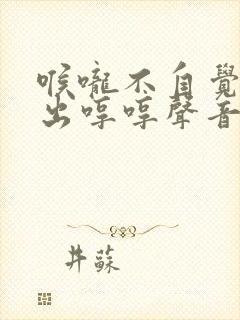 喉嚨不自覺
出哼哼聲音
井蘇